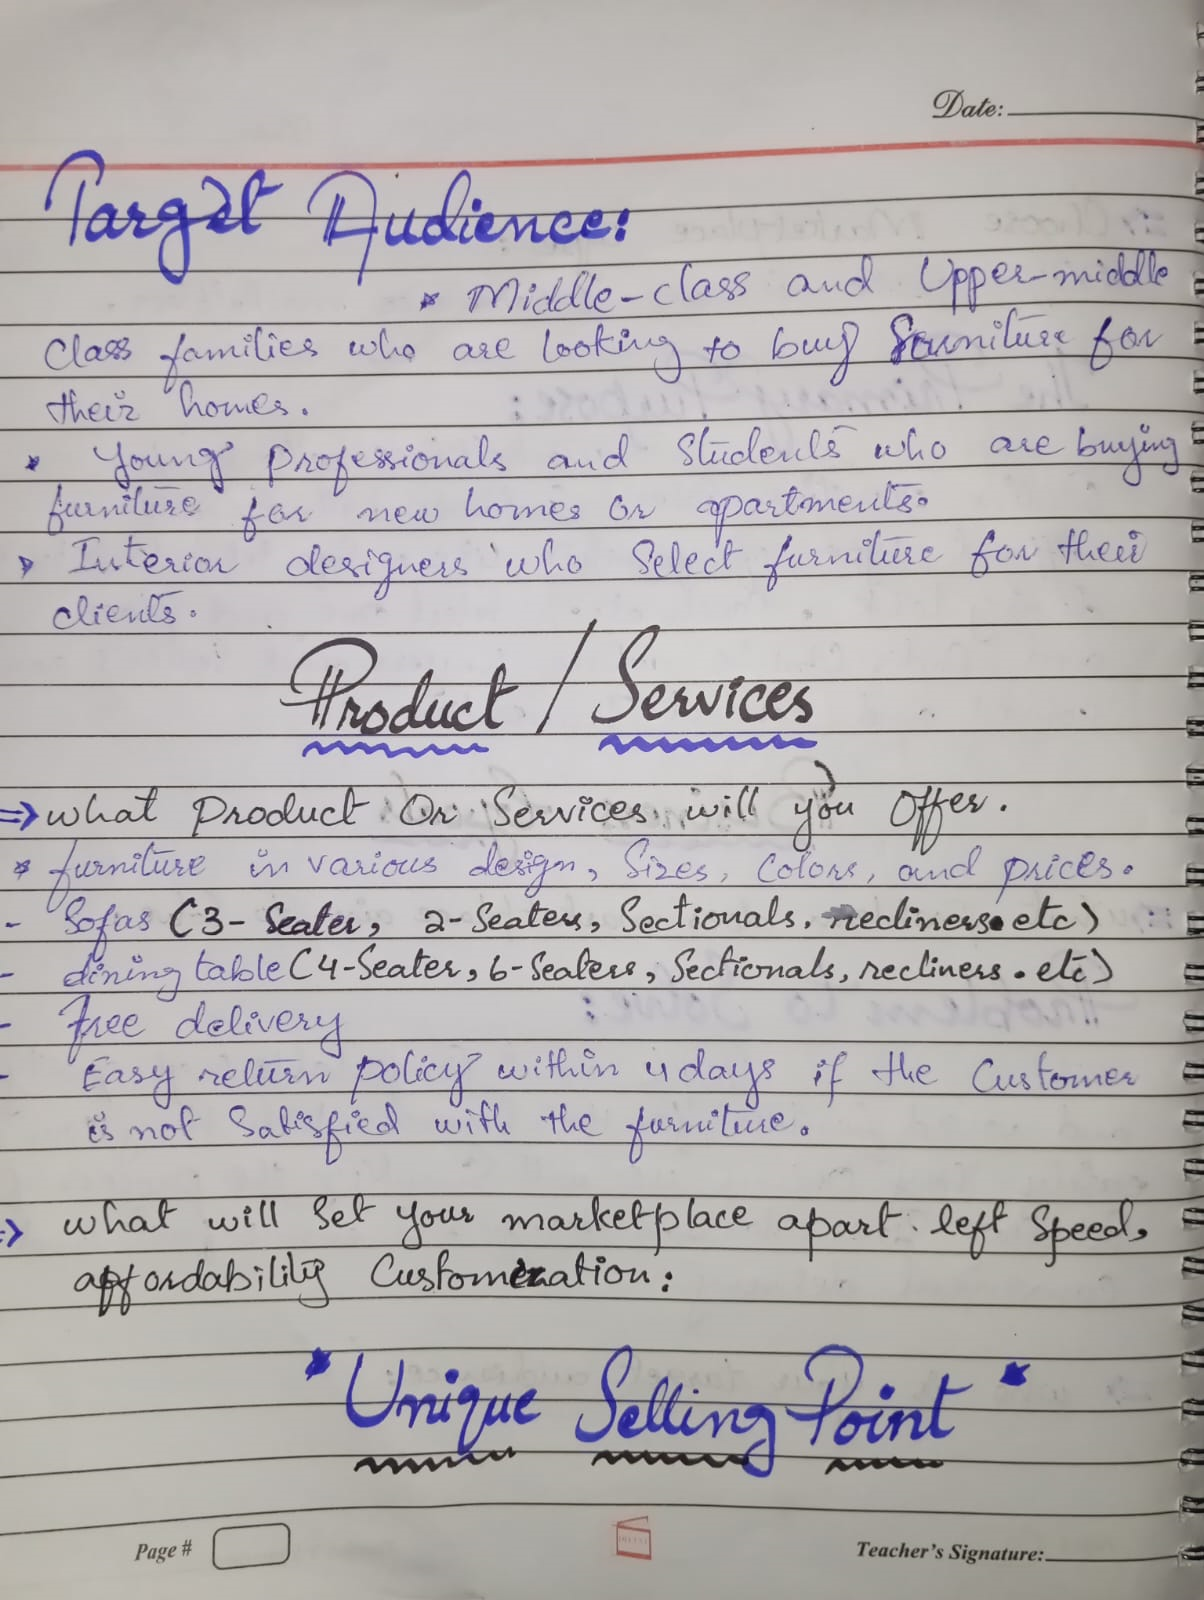 Date:
Target Audience:
* Middle-class and Upper-middle
Class families who are looking to buy furniture for
their homes.
* Young professionals and Students who are buying
furniture for new homes or apartments.
Interior designers who Select furniture for their
clients.
Product / Services
⇒ what Product Or Services will you Offer.
* furniture in various design, Sizes, Colors, and prices.
- Sofas (3-Seater, 2-Seaters, Sectionals, recliners. etc)
- dining table (4-Seater, 6-Seaters, Sectionals, recliners. etc)
- Free delivery
- Easy return policy within 4 days if the Customer
is not Satisfied with the furniture.
⇒ what will Set your marketplace apart. left Speed,
affordability Customization:
* Unique Selling Point *
Page #
Teacher's Signature: